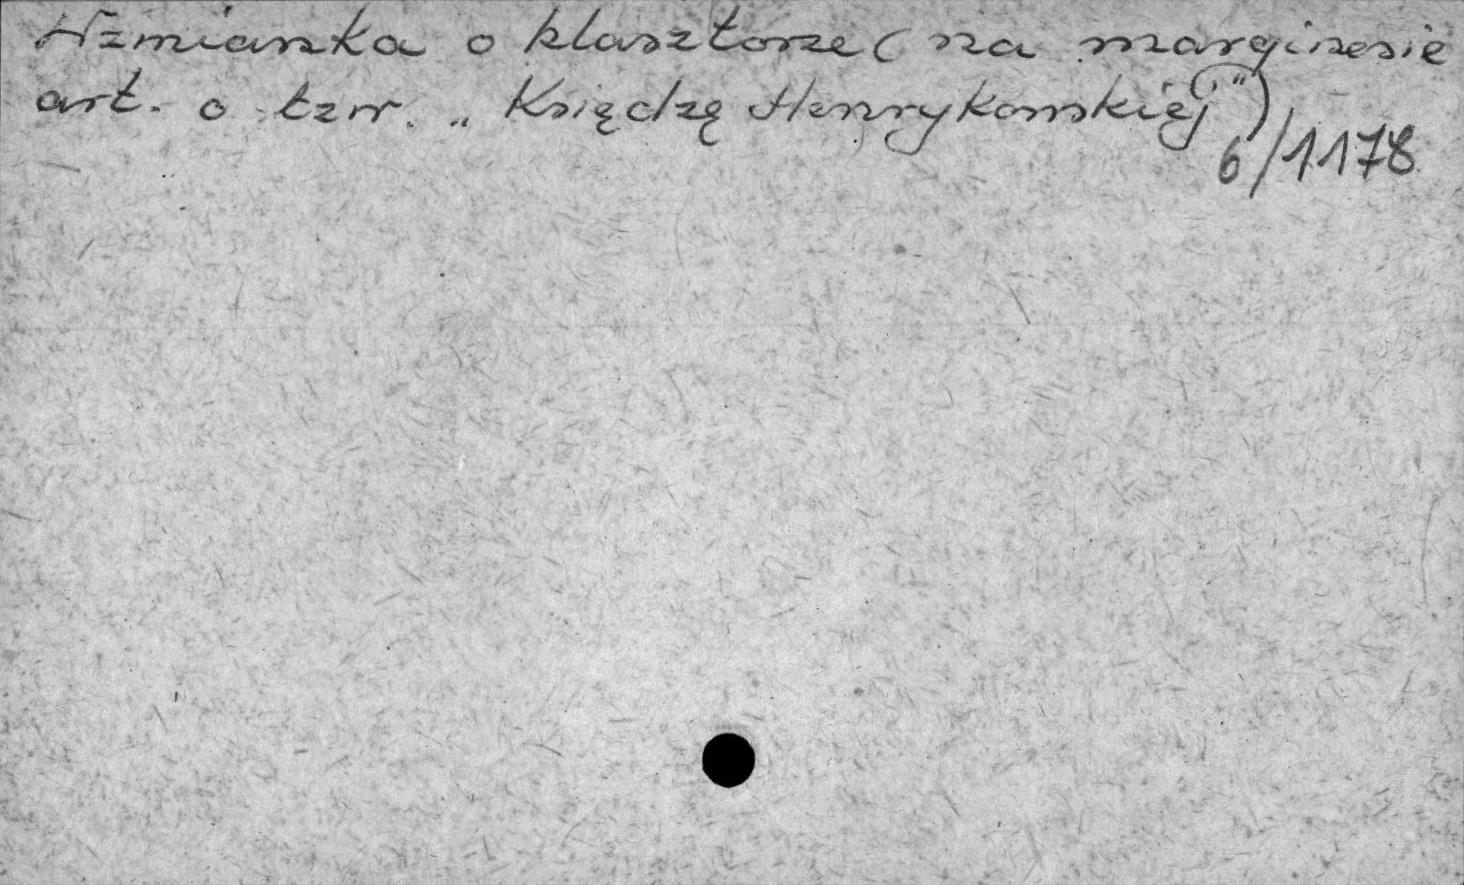 Wzmianka o klasztorze (na marginesie
art. o tzw. „Księdzę Henrykowskiej")
6/1178